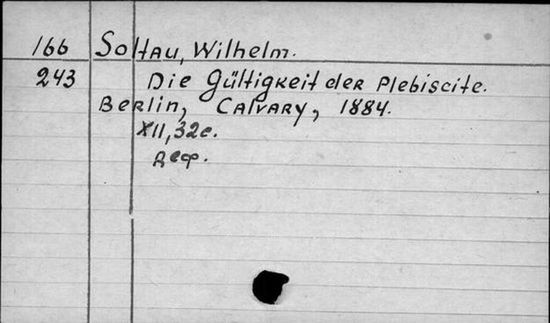 166 Soltau, Wilhelm.
243 Die Gültigkeit der Plebiscite.
Berlin, Calvary, 1884.
XII, 32 с.
Деф.